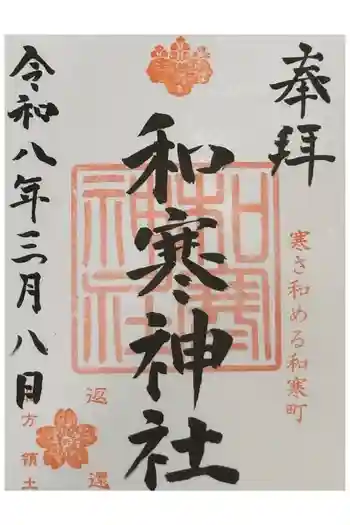 奉拝
寒さ和める和寒町
和寒神社
和寒神社
返還
令和八年三月八日
方領土